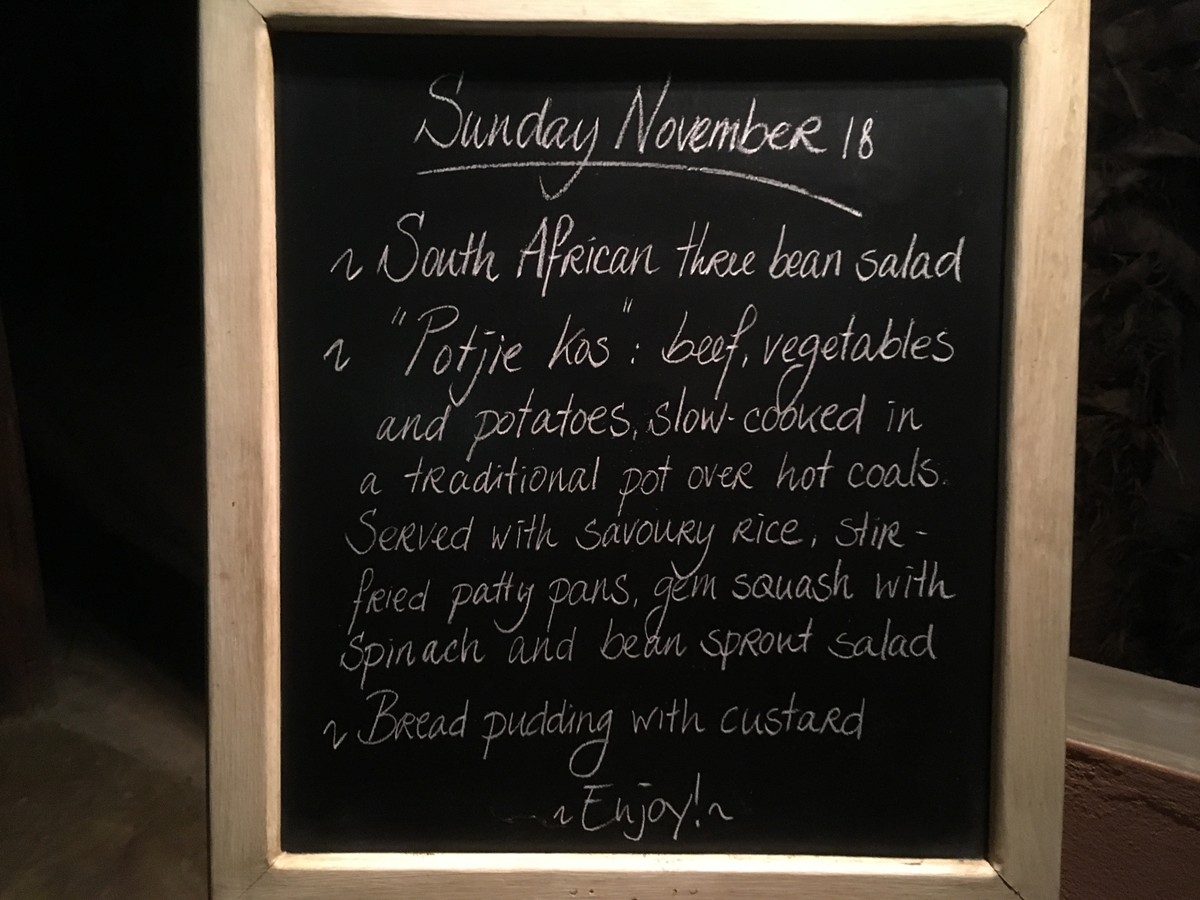 Sunday November 18
~ South African three bean salad
~ "Potjie Kos": beef, vegetables
and potatoes, slow-cooked in
a traditional pot over hot coals.
Served with savoury rice, stir-
fried patty pans, gem squash with
spinach and bean sprout salad
~ Bread pudding with custard
~Enjoy!~